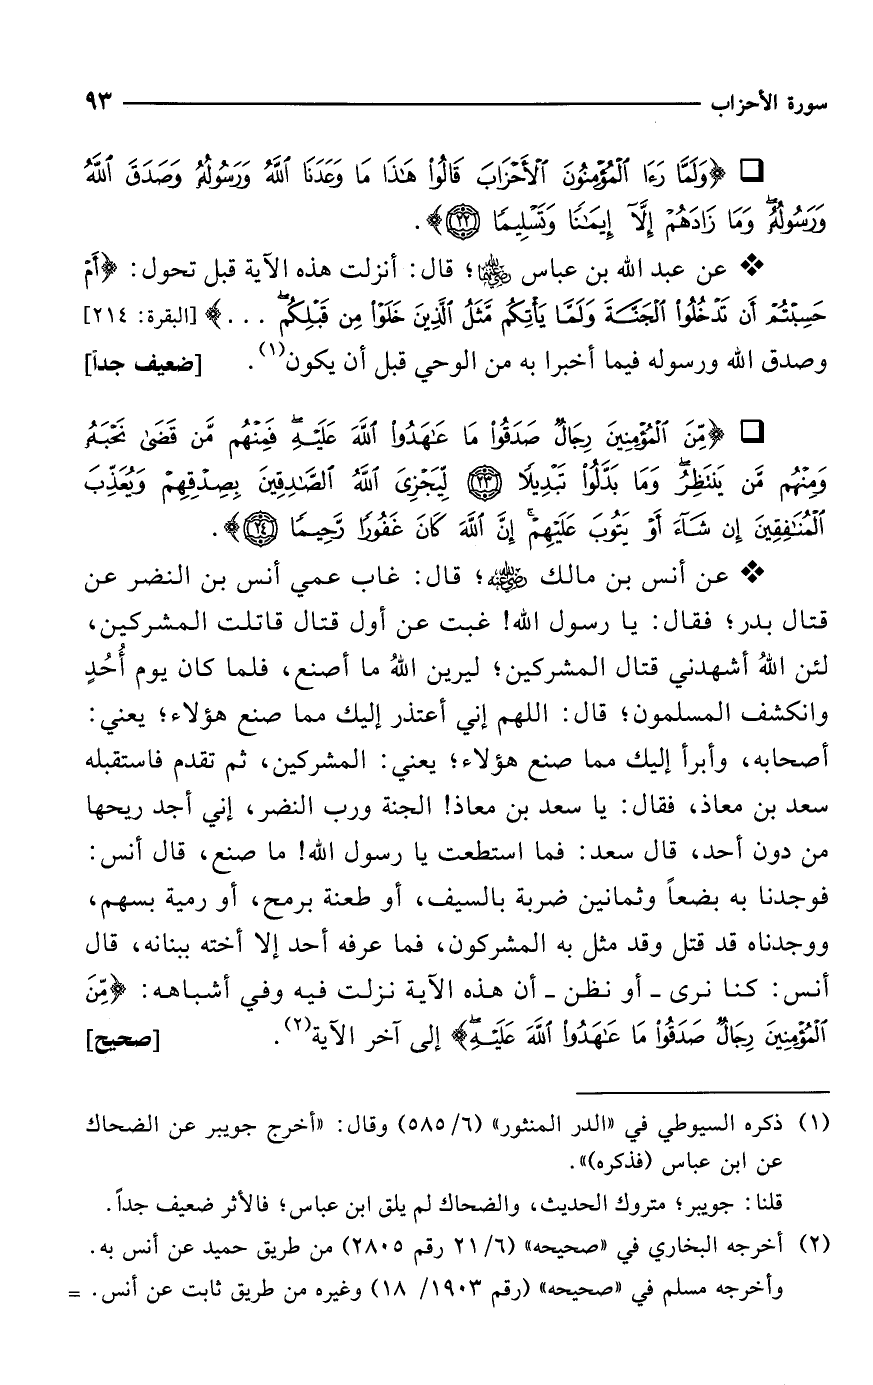 سورة الأحزاب ٩٣
❑ ﴿وَلَمَّا رَءَا الْمُؤْمِنُونَ الْأَحْزَابَ قَالُوا هَٰذَا مَا وَعَدَنَا اللَّهُ وَرَسُولُهُ وَصَدَقَ اللَّهُ
وَرَسُولُهُ ۚ وَمَا زَادَهُمْ إِلَّا إِيمَٰنًا وَتَسْلِيمًا ﴿٢٢﴾﴾.
❖ عن عبد الله بن عباس رضي الله عنهما؛ قال: أنزلت هذه الآية قبل تحول: ﴿أَمْ
حَسِبْتُمْ أَن تَدْخُلُوا الْجَنَّةَ وَلَمَّا يَأْتِكُم مَّثَلُ الَّذِينَ خَلَوْا مِن قَبْلِكُم ۖ ...﴾ [البقرة: ٢١٤]
وصدق الله ورسوله فيما أخبرا به من الوحي قبل أن يكون(١). [ضعيف جداً]
❑ ﴿مِّنَ الْمُؤْمِنِينَ رِجَالٌ صَدَقُوا مَا عَٰهَدُوا اللَّهَ عَلَيْهِ ۖ فَمِنْهُم مَّن قَضَىٰ نَحْبَهُ
وَمِنْهُم مَّن يَنتَظِرُ ۖ وَمَا بَدَّلُوا تَبْدِيلًا ﴿٢٣﴾ لِّيَجْزِيَ اللَّهُ الصَّٰدِقِينَ بِصِدْقِهِمْ وَيُعَذِّبَ
الْمُنَٰفِقِينَ إِن شَآءَ أَوْ يَتُوبَ عَلَيْهِمْ ۚ إِنَّ اللَّهَ كَانَ غَفُورًا رَّحِيمًا ﴿٢٤﴾﴾.
❖ عن أنس بن مالك رضي الله عنه؛ قال: غاب عمي أنس بن النضر عن
قتال بدر؛ فقال: يا رسول الله! غبت عن أول قتال قاتلت المشركين،
لئن اللهُ أشهدني قتال المشركين؛ ليرين اللهُ ما أصنع، فلما كان يوم أُحُدٍ
وانكشف المسلمون؛ قال: اللهم إني أعتذر إليك مما صنع هؤلاء؛ يعني:
أصحابه، وأبرأ إليك مما صنع هؤلاء؛ يعني: المشركين، ثم تقدم فاستقبله
سعد بن معاذ، فقال: يا سعد بن معاذ! الجنة ورب النضر، إني أجد ريحها
من دون أحد، قال سعد: فما استطعت يا رسول الله! ما صنع، قال أنس:
فوجدنا به بضعاً وثمانين ضربة بالسيف، أو طعنة برمح، أو رمية بسهم،
ووجدناه قد قتل وقد مثل به المشركون، فما عرفه أحد إلا أخته ببنانه، قال
أنس: كنا نرى ـ أو نظن ـ أن هذه الآية نزلت فيه وفي أشباهه: ﴿مِّنَ
الْمُؤْمِنِينَ رِجَالٌ صَدَقُوا مَا عَٰهَدُوا اللَّهَ عَلَيْهِ ۖ﴾ إلى آخر الآية(٢). [صحيح]
(١) ذكره السيوطي في «الدر المنثور» (٦/ ٥٨٥) وقال: «أخرج جويبر عن الضحاك
عن ابن عباس (فذكره)».
قلنا: جويبر؛ متروك الحديث، والضحاك لم يلق ابن عباس؛ فالأثر ضعيف جداً.
(٢) أخرجه البخاري في «صحيحه» (٦/ ٢١ رقم ٢٨٠٥) من طريق حميد عن أنس به.
وأخرجه مسلم في «صحيحه» (رقم ١٩٠٣/ ١٨) وغيره من طريق ثابت عن أنس. =